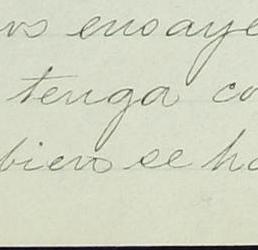 os ensaye
tenga co
biera se ha